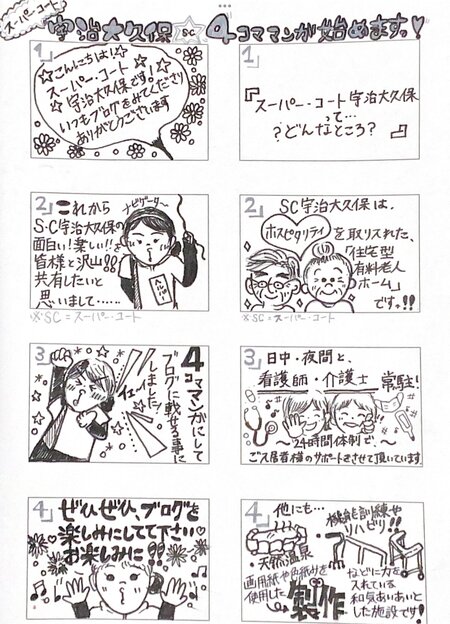 スーパー・コート
宇治大久保☆SC 4コママンガ始めます。!♡
1
☆こんにちは!☆
スーパー・コート
宇治大久保です!
いつもブログをみてくださり
ありがとうございます
2
これから
S・C宇治大久保の
面白い!楽しい!!を
皆様と沢山!!
共有したいと
思いまして……
ナビゲーター
ヘルパー
※SC=スーパー・コート
3
4コママンガにして
ブログに載せる事に
しました!
イェーイ
4
ぜひぜひ、ブログを
楽しみにしてて下さい♡
お楽しみに!?
1
『スーパー・コート宇治大久保
って…
?どんなところ?』
2
SC宇治大久保は、
ホスピタリティ
を取り入れた、
「住宅型
有料老人
ホーム」
です。!!
※SC=スーパー・コート
3
日中・夜間と、
看護師・介護士 常駐!
〜24時間体制で〜
ご入居者様のサポートをさせて頂いています
4
他にも…
天然温泉
機能訓練や
リハビリ!!
画用紙や色紙を
使用した
製作
などに力を
入れている
和気あいあいと
した施設です!